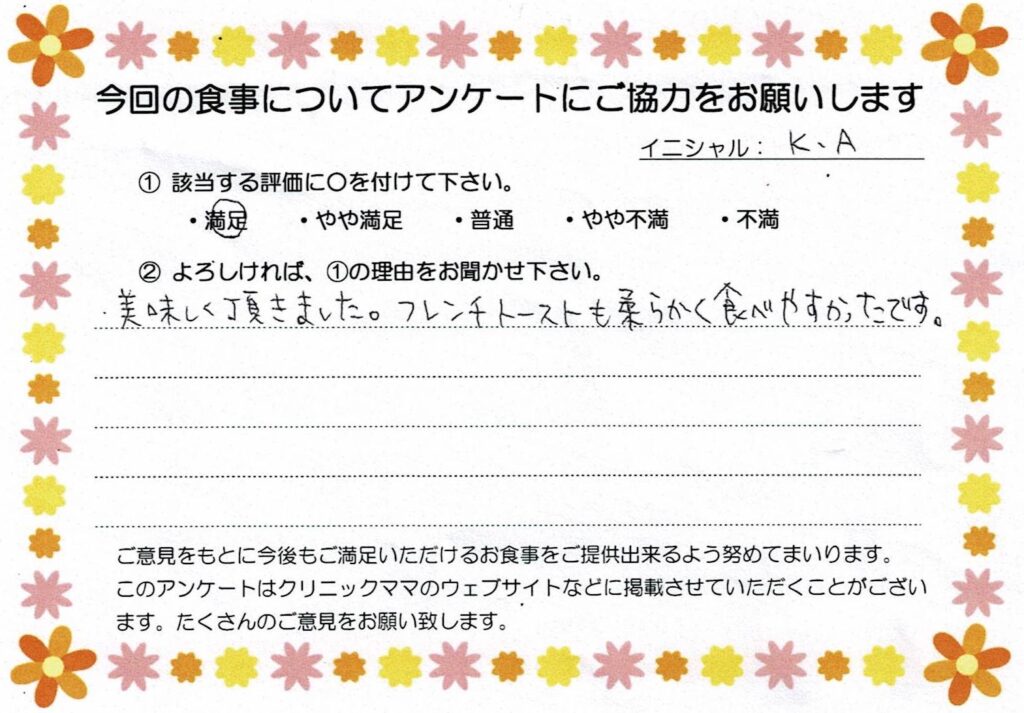 今回の食事についてアンケートにご協力をお願いします
イニシャル： K、A
① 該当する評価に○を付けて下さい。
・満足 ・やや満足 ・普通 ・やや不満 ・不満
② よろしければ、①の理由をお聞かせ下さい。
美味しく頂きました。フレンチトーストも柔らかく食べやすかったです。
ご意見をもとに今後もご満足いただけるお食事をご提供出来るよう努めてまいります。
このアンケートはクリニックママのウェブサイトなどに掲載させていただくことがござい
ます。たくさんのご意見をお願い致します。